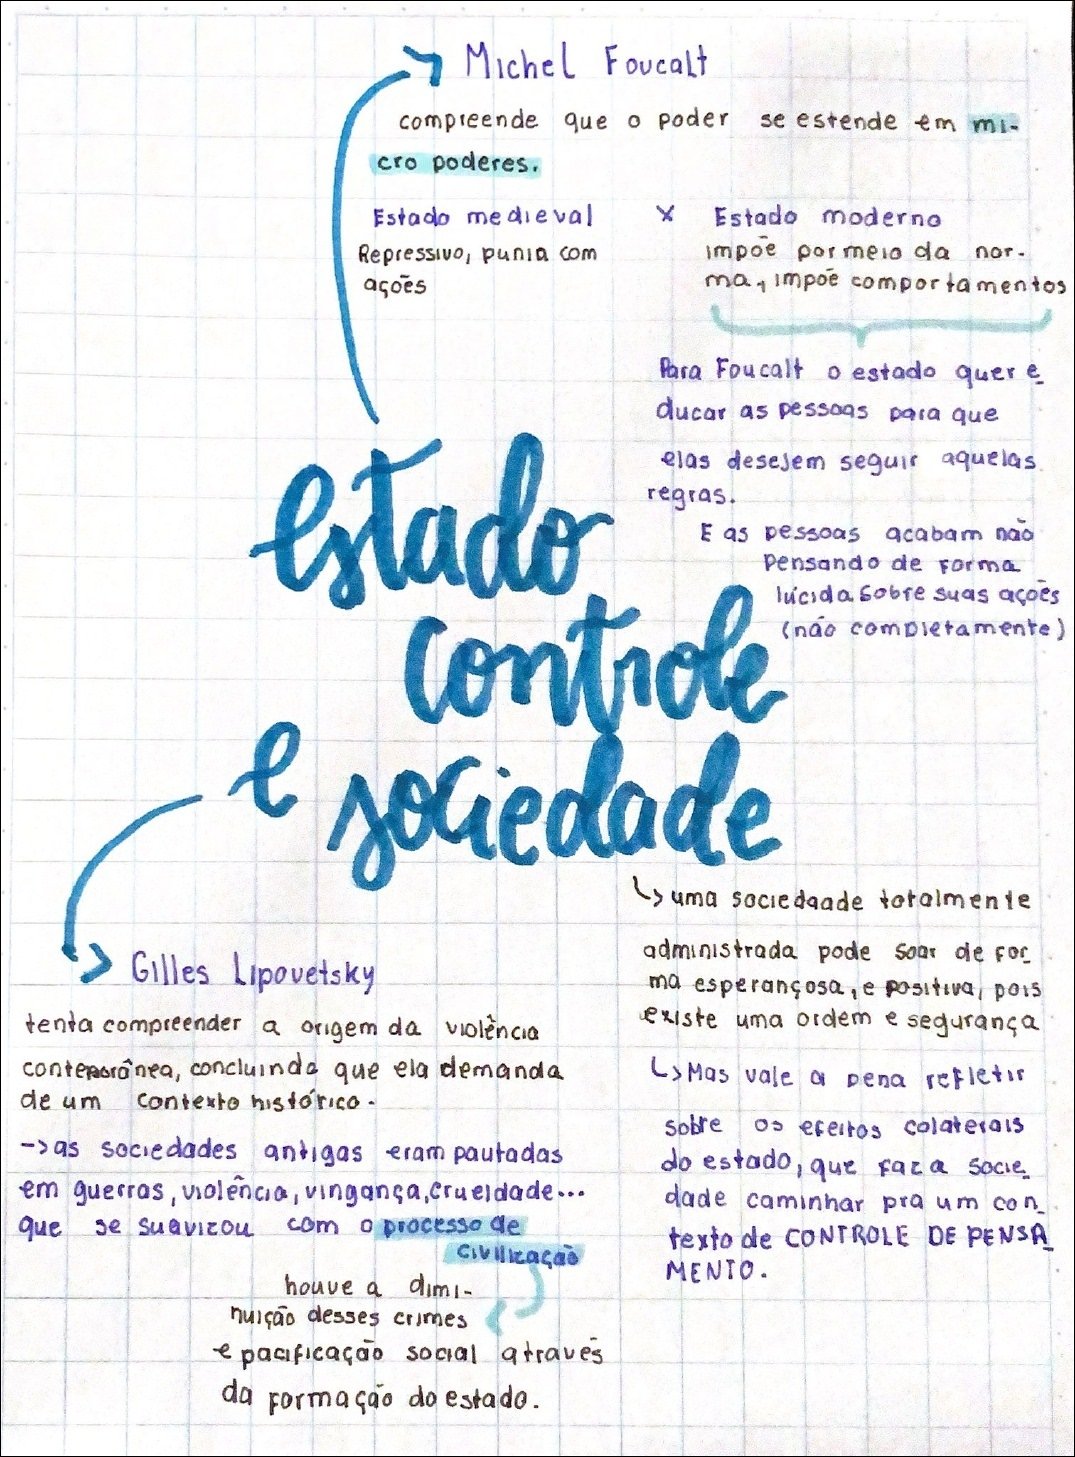 Michel Foucalt
compreende que o poder se estende em mi-
cro poderes.
Estado medieval x Estado moderno
Repressivo, punia com
ações
impõe por meio da nor-
ma, impõe comportamentos
Para Foucalt o estado quer e
ducar as pessoas para que
elas desejem seguir aquelas
regras.
E as pessoas acabam não
pensando de forma
lúcida sobre suas ações
(não completamente)
estado
controle
e sociedade
↳ uma sociedaade totalmente
administrada pode soar de for_
ma esperançosa, e positiva, pois
existe uma ordem e segurança
↳ Mas vale a pena refletir
sobre os efeitos colaterais
do estado, que faz a socie_
dade caminhar pra um con_
texto de CONTROLE DE PENSA_
MENTO.
Gilles Lipovetsky
tenta compreender a origem da violência
contemporânea, concluindo que ela demanda
de um contexto histórico.
→ as sociedades antigas eram pautadas
em guerras, violência, vingança, crueldade...
que se suavizou com o processo de
civilização
houve a dimi-
nuição desses crimes
e pacificação social através
da formação do estado.